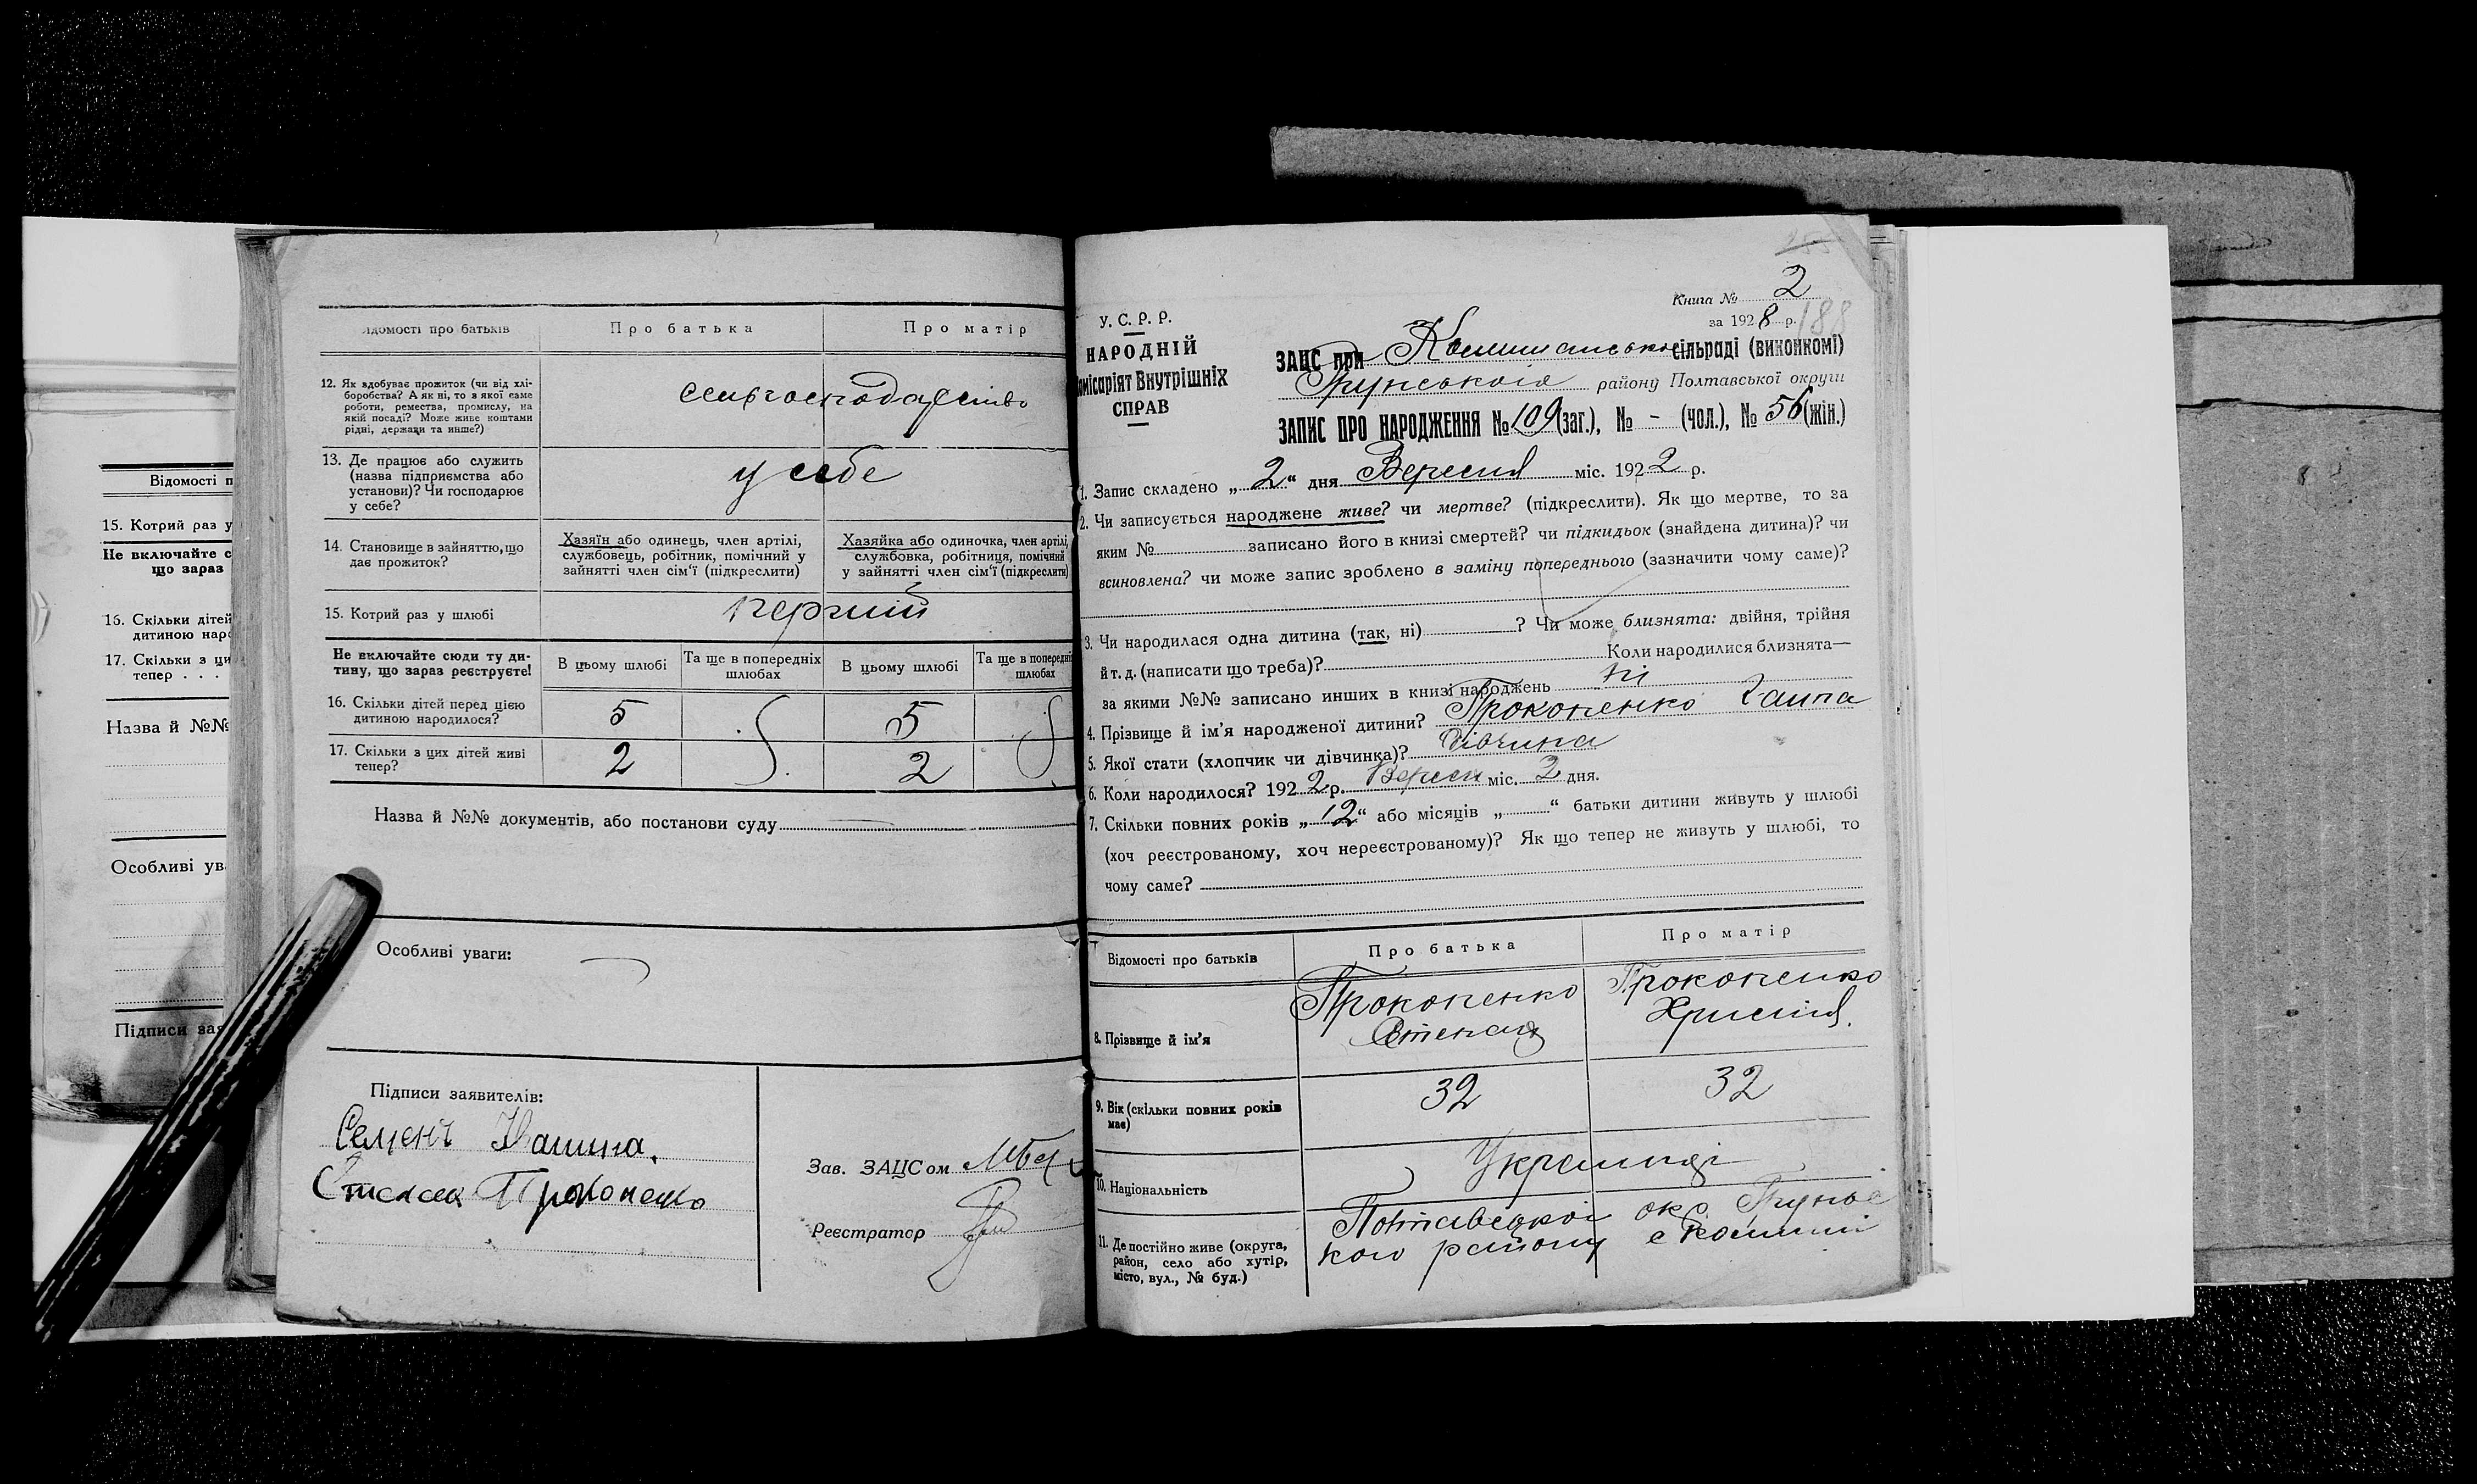 Відомості п
15. Котрий раз у
Не включайте с
що зараз
16. Скільки дітей
дитиною наро
17. Скільки з ци
тепер . . .
Назва й №№
Особливі ув
Підписи зая
ідомості про батьків
Про батька
Про матір
12. Як здобуває прожиток (чи від хлі-
боробства? А як ні, то з якої саме
роботи, ремества, промислу, на
якій посаді? Може живе коштами
рідні, держави та инше?)
13. Де працює або служить
(назва підприємства або
установи)? Чи господарює
у себе?
у себе
14. Становище в зайняттю, що
дає прожиток?
Хазяїн або одинець, член артілі,
службовець, робітник, помічний у
зайнятті член сім'ї (підкреслити)
Хазяйка або одиночка, член артілі,
службовка, робітниця, помічний
у зайнятті член сім'ї (підкреслити)
15. Котрий раз у шлюбі
перший
Не включайте сюди ту ди-
тину, що зараз реєструєте!
В цьому шлюбі
Та ще в попередніх
шлюбах
В цьому шлюбі
Та ще в попередні
шлюбах
16. Скільки дітей перед цією
дитиною народилося?
5
5
17. Скільки з цих дітей живі
тепер?
2
2
Назва й №№ документів, або постанови суду
Особливі уваги:
Підписи заявителів:
Семенъ
Прокопенко
Зав. ЗАЦСом
Реєстратор
Книга № 2
за 1928 р.
188
У. С. Р. Р.
НАРОДНІЙ
омісаріят Внутрішніх
СПРАВ
ЗАЦС при сільраді (виконкомі)
району Полтавської округи
ЗАПИС ПРО НАРОДЖЕННЯ № 109 (заг.), № - (чол.), № 56 (жін.)
1. Запис складено „ 2 “ дня Вересня міс. 1922 р.
2. Чи записується народжене живе? чи мертве? (підкреслити). Як що мертве, то за
яким № записано його в книзі смертей? чи підкидьок (знайдена дитина)? чи
всиновлена? чи може запис зроблено в заміну попереднього (зазначити чому саме)?
3. Чи народилася одна дитина (так, ні) ? Чи може близнята: двійня, трійня
й т. д. (написати що треба)? Коли народилися близнята—
за якими №№ записано инших в книзі народжень ні
4. Прізвище й ім'я народженої дитини? Прокопенко Ганна
5. Якої стати (хлопчик чи дівчинка)? дівчина
6. Коли народилося? 1922 р. Вересн міс. 2 дня.
7. Скільки повних років „ 12 “ або місяців „ “ батьки дитини живуть у шлюбі
(хоч реєстрованому, хоч нереєстрованому)? Як що тепер не живуть у шлюбі, то
чому саме?
Відомості про батьків
Про батька
Про матір
8. Прізвище й ім'я
Прокопенко
Степан
Прокопенко
Христя.
9. Вік (скільки повних років
має)
32
32
10. Національність
Українці
11. Де постійно живе (округа,
район, село або хутір,
місто, вул., № буд.)
Полтавецкої окр. Грунсь
кого району